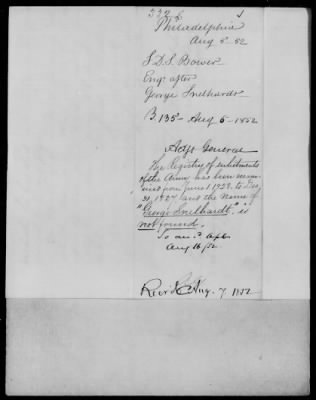 Philadelphia
Aug 5. 52
S. D. S. Bower
Enq. after
George Snelhardt
B. 135 - Aug 5 - 1852
Adjt General
The Registry of enlistments
of the Army has been exam-
ined from June 1 1828 to Dec
31, 1827 and the name of
"George Snelhardt" is
not found.
So
Aug 16/52
Recd Aug. 7. 1852